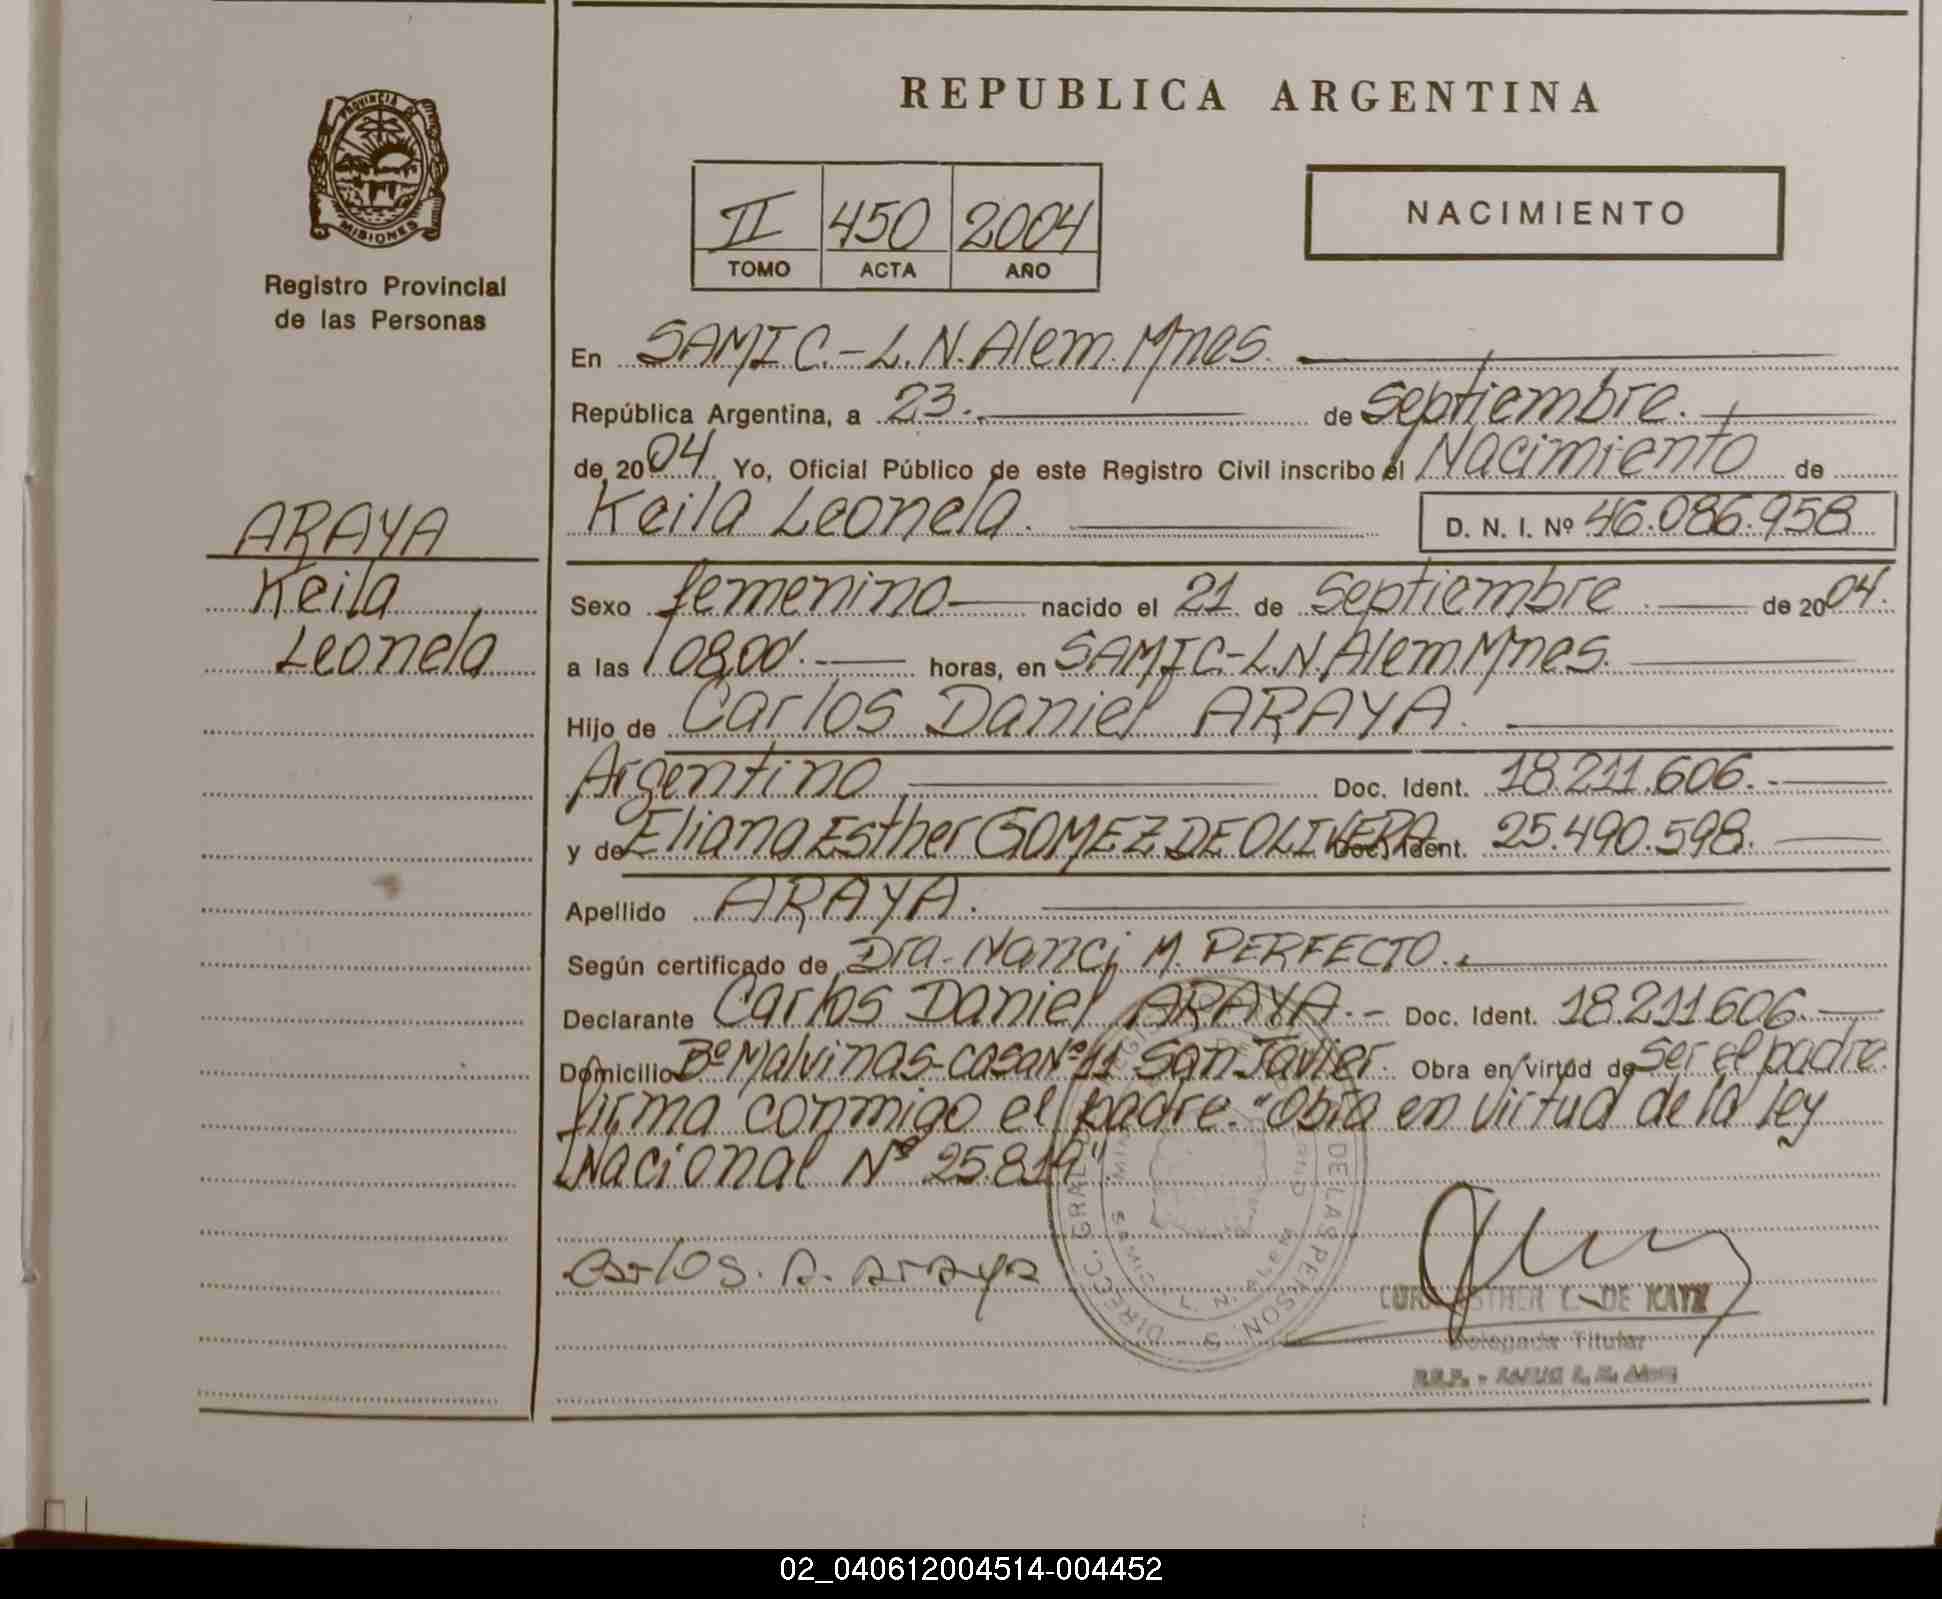 REPUBLICA ARGENTINA
PROVINCIA DE
MISIONES
Registro Provincial
de las Personas
II 450 2004
TOMO ACTA AÑO
NACIMIENTO
En SAMIC.-L.N.Alem.Mnes.
República Argentina, a 23.- de septiembre.
de 2004 Yo, Oficial Público de este Registro Civil inscribo el Nacimiento de
Keila Leonela. D. N. I. Nº 46.086.958
ARAYA
Keila
Leonela
Sexo femenino nacido el 21 de septiembre de 2004.
a las 08,00.- horas, en SAMIC-L.N.Alem.Mnes.
Hijo de Carlos Daniel ARAYA.
Argentino Doc. Ident. 18.211.606.-
y de Eliana Esther GOMEZ DE OLIVERA Doc. Ident. 25.490.598.
Apellido ARAYA.
Según certificado de Dra. Nanci M. PERFECTO.
Declarante Carlos Daniel ARAYA.- Doc. Ident. 18.211.606.-
Domicilio Bº Malvinas-casa Nº 11 San Javier. Obra en virtud de ser el padre.
firma conmigo el padre. "Obra en virtud de la ley
Nacional Nº 25.819".
Carlos. D. Araya
DIREC. GRAL. DE LAS PERSONAS
L. N. ALEM
DE KATZ
Delegada Titular
02_040612004514-004452